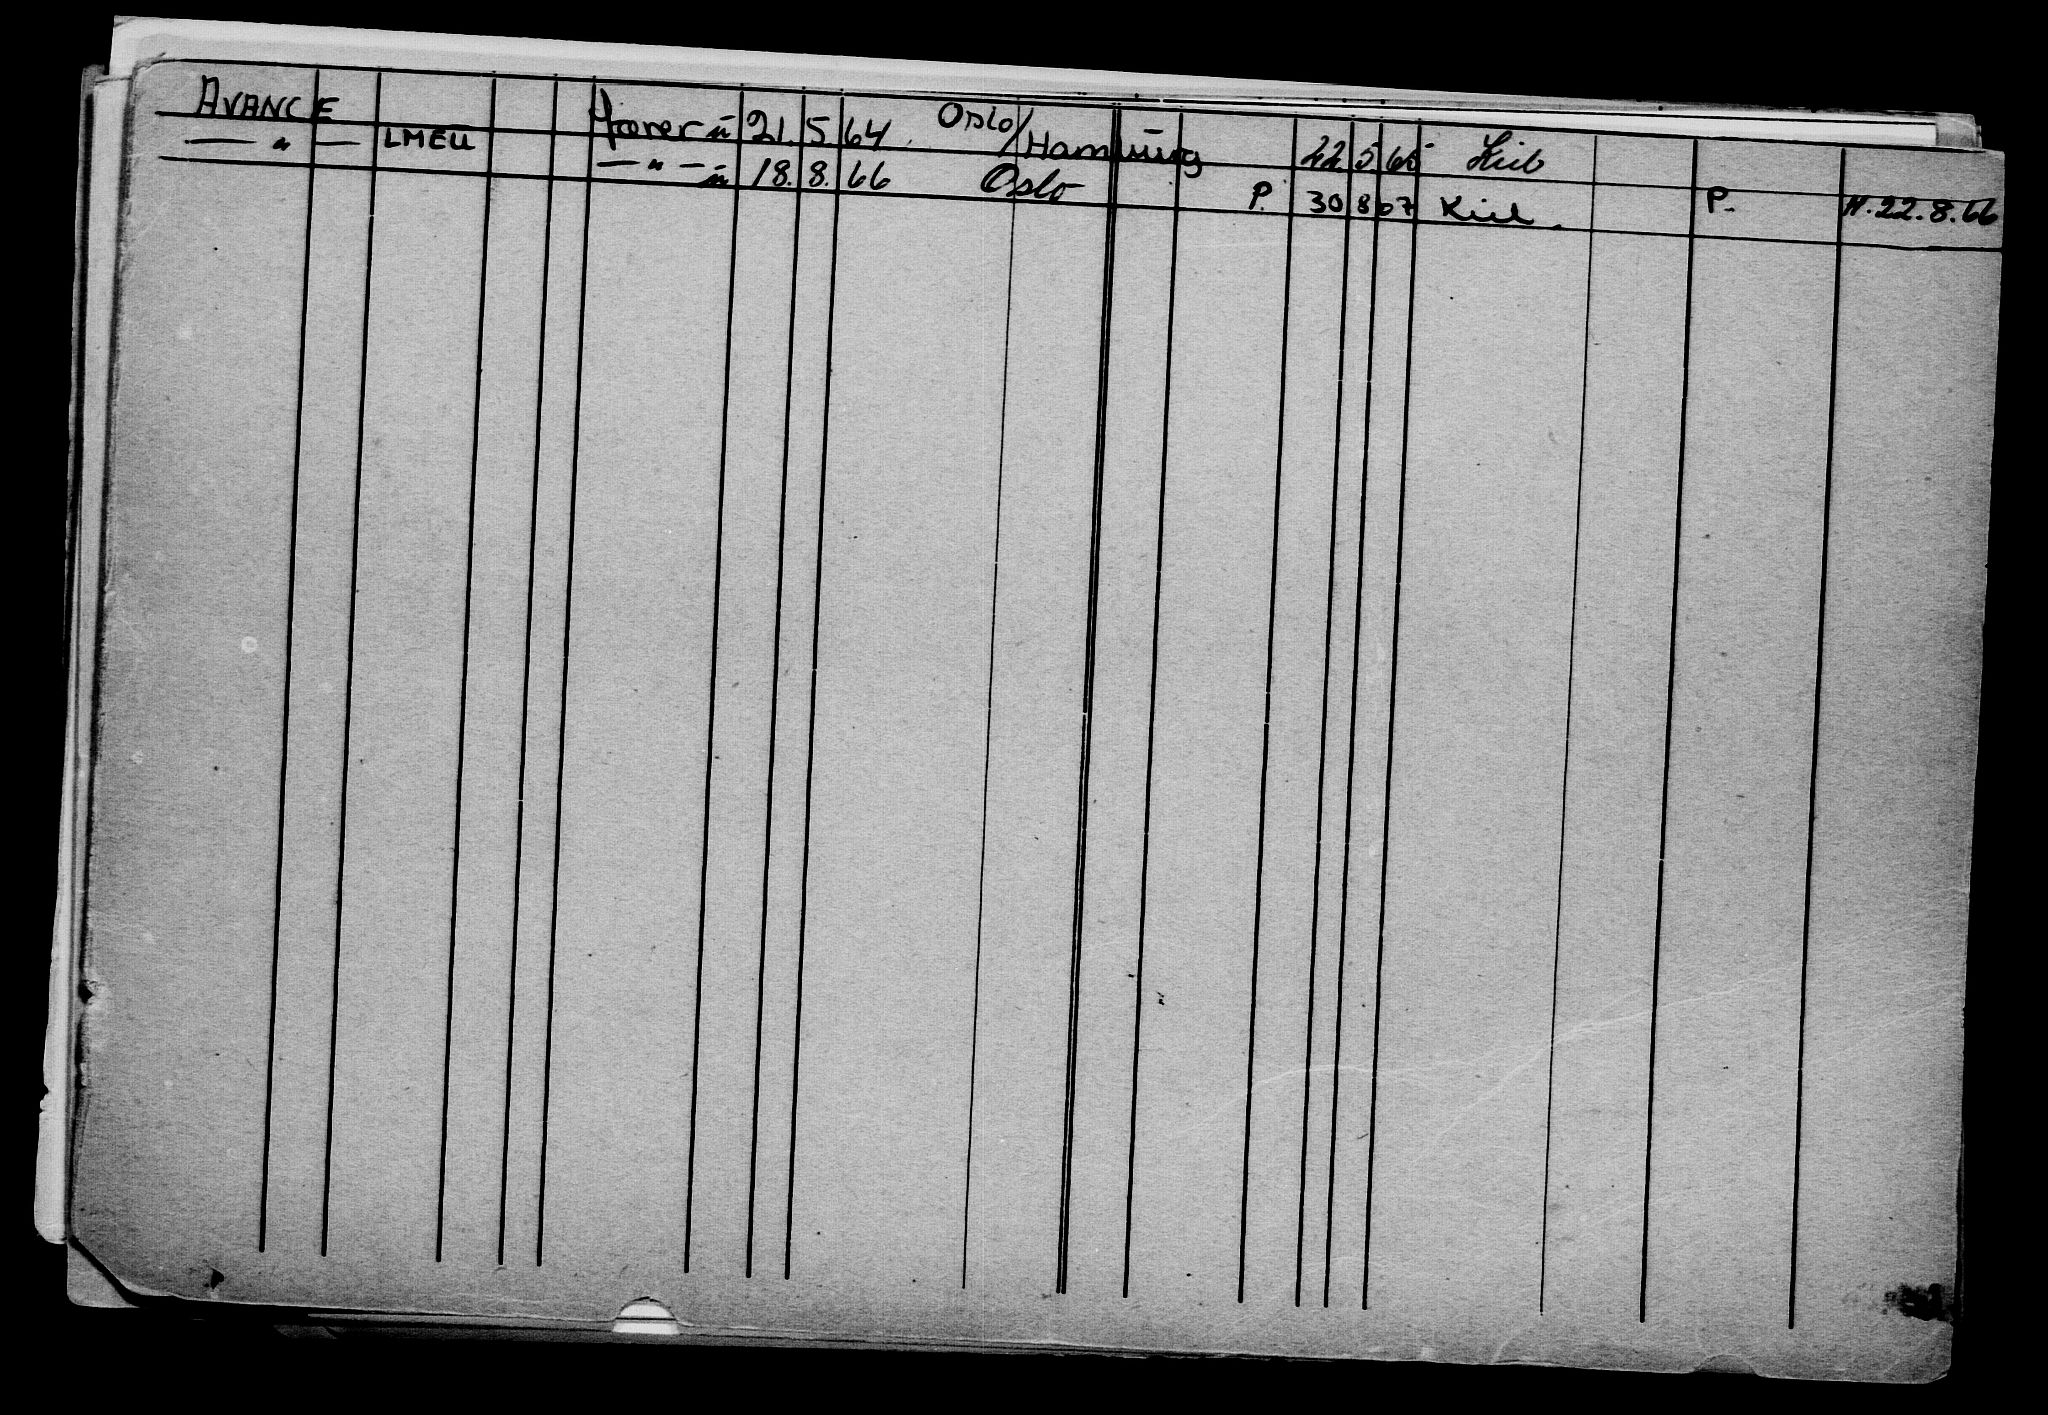 AVANCE fører ü 21. 5. 64. Oslo/Hamburg 22. 5. 65
— " — LMEU — " — ü 18. 8. 66 Oslo P. 30 8 67 Kiel. P. H. 22.8.66